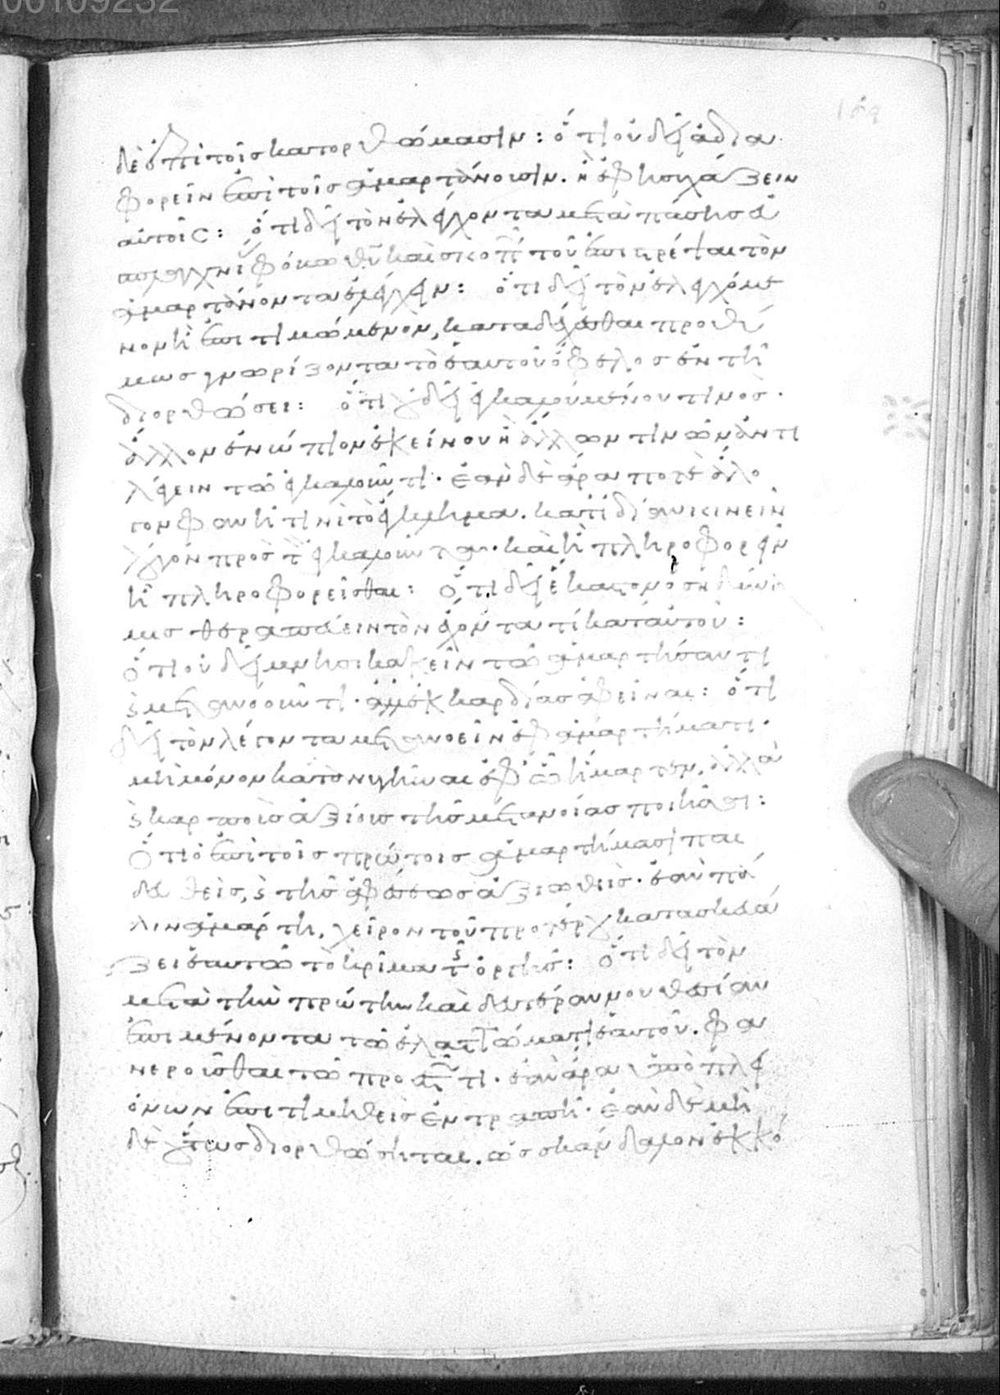 δὲ ἐπὶ τοῖς κατορθώμασιν: ὅτι οὐ δεῖ ἀδια
φορεῖν ἐπὶ τοῖς ἁμαρτάνουσιν. ἢ ἐφησυχάζειν
αὐτοῖς: ὅτι δεῖ τὸν ἐλέγχοντα μετὰ πάσης εὐ
σπλαγχνίας φόβῳ θῦ καὶ σκοπῷ τοῦ ἐπιστρέψαι τὸν
ἁμαρτάνοντα ἐλέγχειν: ὅτι δεῖ τὸν ἐλεγχόμε
νον ἢ ἐπιτιμώμενον, καταδέχεσθαι προθύ
μως γνωρίζοντα τὸ ἑαυτοῦ ὄφελος ἐν τῇ
διορθώσει: ὅτι οὐ δεῖ ἐγκαλουμένου τινὸς.
ἄλλον ἐνώπιον ἐκείνου ἢ ἄλλων τινῶν ἀντι
λέγειν τῷ ἐγκαλοῦντι. ἐὰν δὲ ἄρα ποτὲ ἄλο
γον φανῇ τινὶ τὸ ἔγκλημα. κατιδίαν κινεῖν
λόγον πρὸς τὸν ἐγκαλοῦντα. καὶ ἢ πληροφορεῖν
ἢ πληροφορεῖσθαι: ὅτι δεῖ ἕκαστον ὅση δύνα
μις θεραπεύειν τὸν ἔχοντα τί κατ' αὐτοῦ:
ὅτι οὐ δεῖ μνησικακεῖν τῷ ἁμαρτήσαντι
καὶ μετανοοῦντι. ἀλλ' ἐκ καρδίας ἀφεῖναι: ὅτι
δεῖ τὸν λέγοντα μετανοεῖν ἐφ' ἁμαρτήματι.
μὴ μόνον κατανυγῆναι ἐφ' ᾧ ἥμαρτεν, ἀλλὰ
καὶ καρποὺς ἀξίους τῆς μετανοίας ποιῆσαι:
Ὅτι ὁ ἐπὶ τοῖς πρώτοις ἁμαρτήμασι παι
δευθεὶς, καὶ τῆς ἀφέσεως ἀξιωθεὶς. ἐὰν πά
λιν ἁμάρτῃ, χεῖρον τοῦ προτέρου κατασκευά
ζει ἑαυτῷ τὸ κρίμα τῆς ὀργῆς: ὅτι δεῖ τὸν
μετὰ τὴν πρώτην καὶ δευτέραν νουθεσίαν
ἐπιμένοντα τῷ ἐλαττώματι ἑαυτοῦ. φα
νεροῦσθαι τῷ προεστῶτι. ἐὰν ἄρα ὑπὸ πλει
όνων ἐπιτιμηθεὶς ἐντραπῇ. ἐὰν δὲ μὴ
δὲ οὕτως διορθώσηται. ὡς σκάνδαλον ἐκκό